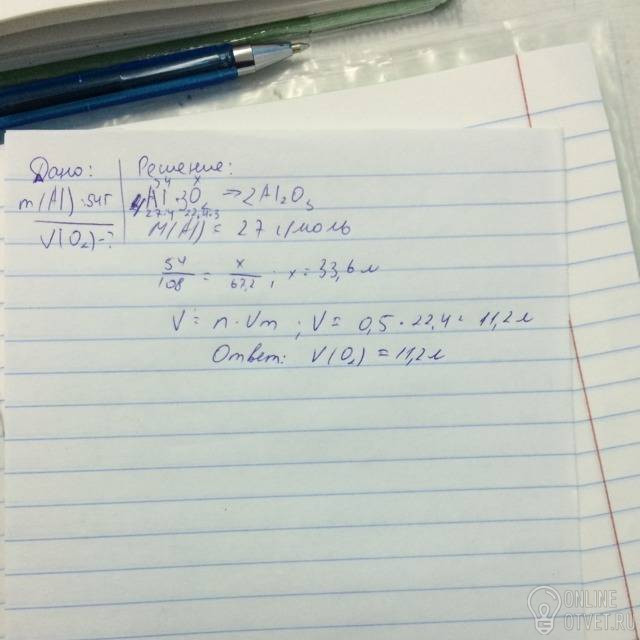 Дано:
m(Al)=54г
V(O₂)=?
Решение:
54 x
4Al+3O₂ → 2Al₂O₃
27·4 22,4·3
M(Al) = 27 г/моль
54/108 = x/67,2 ; x = 33,6 л
V = n · Vm ; V = 0,5 · 22,4 = 11,2 л
Ответ: V(O₂) = 11,2 л
ONLINE
OTVET.RU